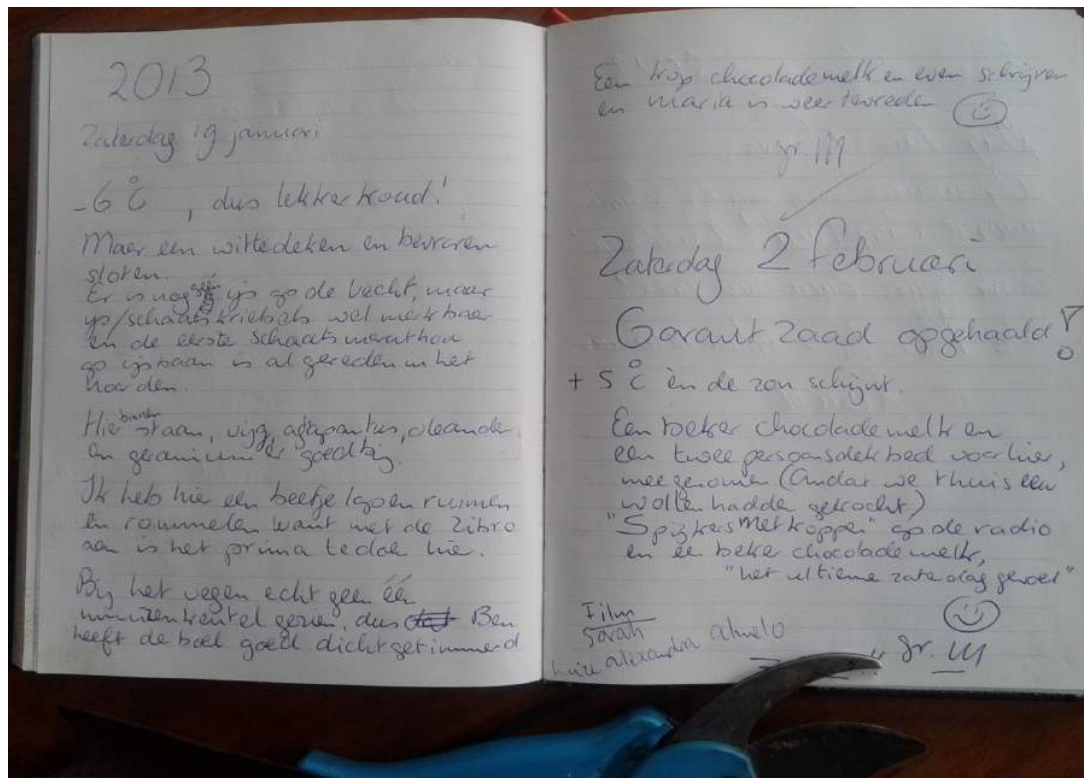 2013
Zaterdag 19 januari
-6°C, dus lekker koud!
Maar een witte deken en bevroren
sloten.
Er is nog geen ijs op de Vecht, maar
ijs/schaatskriebels wel merkbaar
en de eerste schaatsmarathon
op ijsbaan is al gereden in het
noorden.
Hier binnen staan, vijg, agapantus, oleander
en geranium er goed bij.
Ik heb hier een beetje lopen ruimen
en rommelen want met de Zibro
aan is het prima te doen hier.
Bij het vegen echt geen één
muizenkeutel gezien, dus Ben
heeft de boel goed dichtgetimmerd
Een kop chocolademelk en even schrijven
en Maria is weer tevreden
gr. M
Zaterdag 2 februari
Garant Zaad opgehaald!
+5°C èn de zon schijnt.
Een beker chocolademelk en
een tweepersoonsdekbed voor hier,
meegenomen (Omdat we thuis een
wollen hadden gekocht)
"Spijkers met koppen" op de radio
en een beker chocolademelk,
"het ultieme zaterdag gevoel"
Film
Sarah
alexandra
gr. M